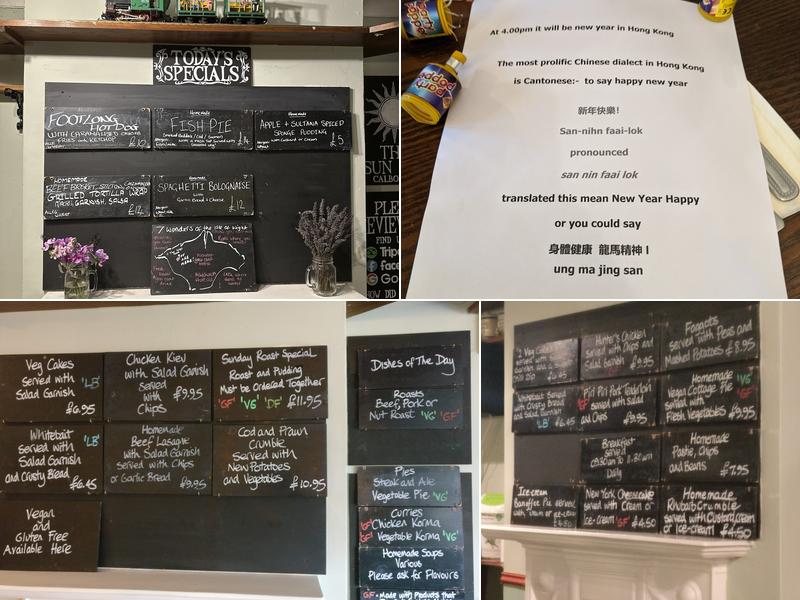 TODAY'S
SPECIALS
FOOTLONG
HOT DOG
WITH CARAMALISED ONIONS
FRIES AND KETCHUP
£10
Homemade
FISH PIE
£14
Homemade
APPLE + SULTANA SPICED
SPONGE PUDDING
WITH CUSTARD OR CREAM
£5
HOMEMADE
GRILLED TORTILLA WRAP
SALSA
£12
Homemade
SPAGHETTI BOLOGNAISE
with
Garlic Bread + Cheese
£12
7 Wonders of the Isle of Wight
TH
SUN
CALBO
PLE
FIND U
Trip
face
Go
HOW DID
At 4.00pm it will be new year in Hong Kong
The most prolific Chinese dialect in Hong Kong
is Cantonese:- to say happy new year
新年快樂!
San-nihn faai-lok
pronounced
san nin faai lok
translated this mean New Year Happy
or you could say
身體健康 龍馬精神 !
ung ma jing san
Veg Cakes
served with 'LB'
Salad Garnish
£6.95
Chicken Kiev
with Salad Garnish
served
with £9.95
Chips
Sunday Roast Special
Roast and Pudding
Must be Ordered Together
'GF' 'VG' 'DF' £11.95
Whitebait 'LB'
Served with
Salad Garnish
and Crusty Bread
£6.45
Homemade
Beef Lasagne
with Salad Garnish
served with Chips
or Garlic Bread £9.95
Cod and Prawn
Crumble
served with
New Potatoes
and Vegetables £10.95
Vegan
and
Gluten Free
Available Here
Dishes of The Day
Roasts
Beef, Pork or
Nut Roast 'VG' 'GF'
Pies
Steak and Ale
Vegetable Pie 'VG'
Curries
'GF' Chicken Korma
'GF' Vegetable Korma 'VG'
Homemade Soups
Various
Please ask for Flavours
GF - Made with Products that
Hunter's Chicken
served with Chips and
Salad Garnish
£9.95
Faggots
served with Peas and
Mashed Potatoes £8.95
Whitebait Served
with Crusty Bread
and Salad Garnish
'LB' £6.45
'GF' Piri Piri Pork Tenderloin
served with Salad
and Chips
£9.95
Homemade 'VG'
Vegan Cottage Pie 'GF'
served with
Fresh Vegetables £9.95
Breakfast
served
Daily
Homemade
Pastie, Chips
and Beans £7.95
Ice cream
Banoffee Pie served
with cream or
£4.50
New York Cheesecake
served with Cream or
Ice-cream 'GF' £4.50
Homemade
Rhubarb Crumble
served with Custard, cream
or Ice-cream £4.50